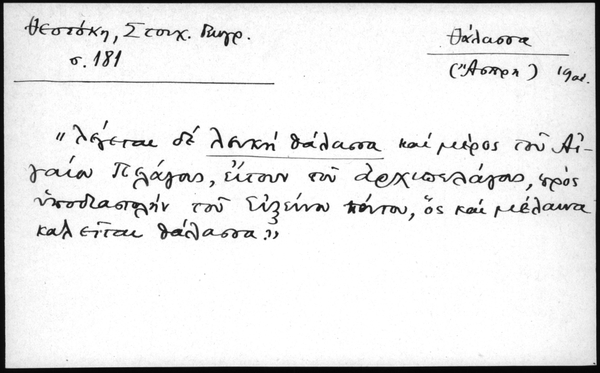 Θεοτόκη, Στοιχ. Γεωγρ.
σ. 181
θάλασσα
(Ἄσπρη) 19αι.
"λέγεται δέ λευκή θάλασσα καί μέρος τοῦ Αἰ-
γαίου Πελάγους, εἴτουν τοῦ ἀρχιπελάγους, πρός
ὑποδιαστολήν τοῦ Εὐξείνου πόντου, ὅς καί μέλαινα
καλεῖται θάλασσα."